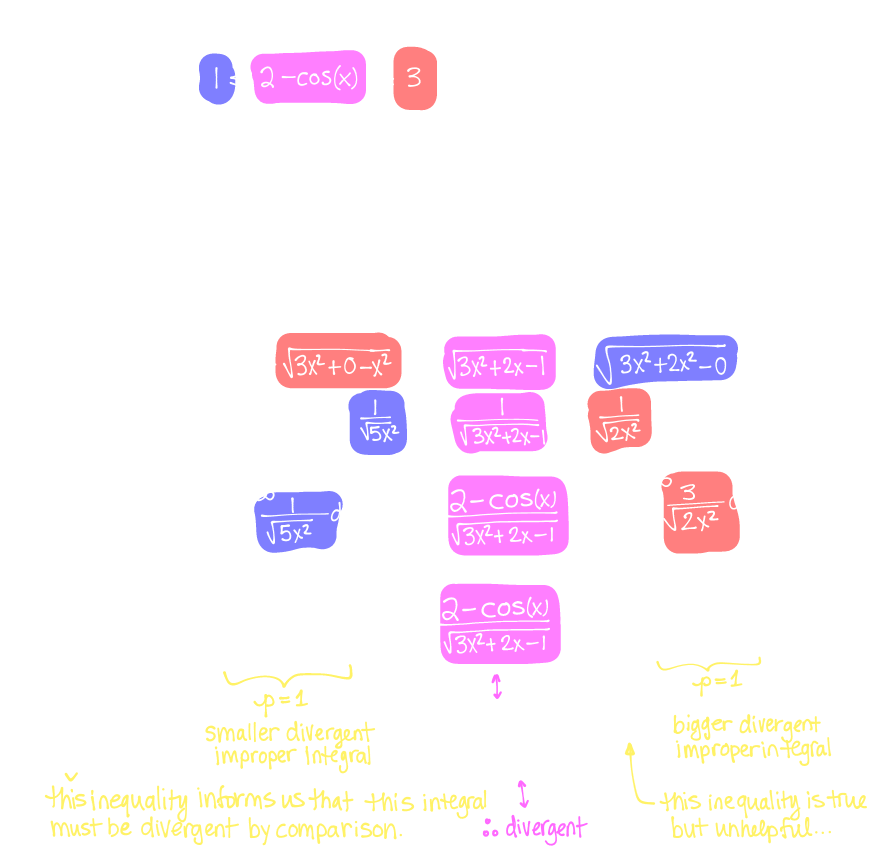 1 ≤ 2-cos(x) 3
√(3x²+0-x²) √(3x²+2x-1) √(3x²+2x²-0)
1/√(5x²) 1/√(3x²+2x-1) 1/√(2x²)
∞ 1/√(5x²) d (2-cos(x))/√(3x²+2x-1) 3/√(2x²)
(2-cos(x))/√(3x²+2x-1)
p=1 ↕ p=1
smaller divergent
improper Integral
bigger divergent
improper integral
this inequality informs us that this integral
must be divergent by comparison.
↕
∴ divergent
this inequality is true
but unhelpful...